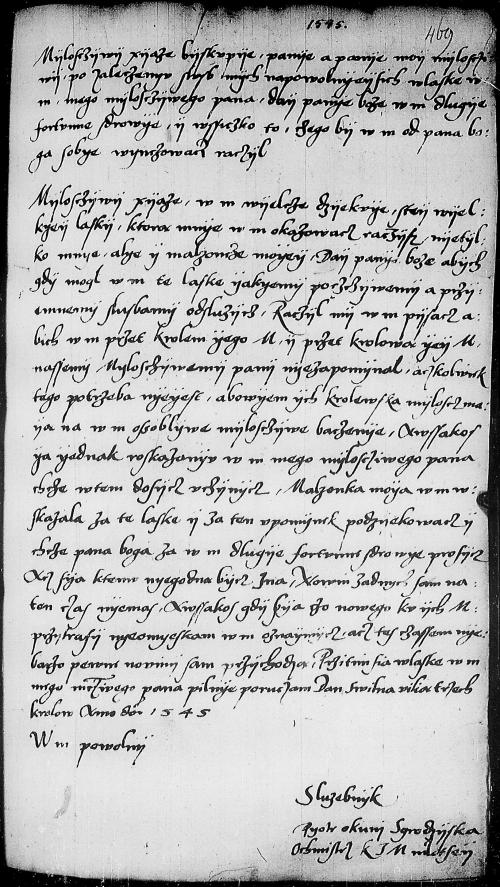 1545.
469
Myloschywy xyaze byskupye, panye a panye moy myloschy
wy, po zaleczenyu sluzb mych napowolnyeyschich w laske w
m, mego myloschywego pana, day panye boze w m dlugye
fortunne sdrowye, y wssyczko to, czego by w m od pana bo-
ga sobye wynczowacz raczyl
Myloschywy xyaze, w m wyelcze dzyekuye, s tey wyel-
kyey lasky, ktora mnye w m okazowacz raczysz, nye tyl-
ko mnye, alye y malzoncze moyey, Day panye boze abych
gdy mogl w m te laske yakyemy poczczywemy a przy-
emnemy sluzbamy odsluzych, Raczyl my w m pysacz a-
bich w m przet krolem yego M, y przet krolowa yey M,
nassemy Myloschywemy pany nye zapomynal, aczkolwiek
tego potrzeba nyeyest, abowyem ych krolewska myloscz ma-
ya na w m osoblywe myloschywe baczenye, Awssakos
ya yednak wskazanyu w m mego myloscziwego pana
chcze w tem dosycz uczynycz, Malzonka moya w m w-
skazala za te laske y za ten upomynek podzyekowacz y
chcze pana boga za w m dlugye fortunne sdrowye prosycz
Acz sya ktemu nyegodna bycz zna, Nowin zadnych sam na
ten czas nyemas, Awssakos gdy sya czo nowego ku ych M
przytrafy nyeomyeskam w m oznaymycz, acz tes czassem nye-
barzo pewne nowiny sam przychodza, Przitim sia w laske w m
mego m{l}czywego pana pilnye poruczam Dan s wilna vilia trzech
krolow Anno do{m} 1545
W m powolny
Sluzebnyk
Pyotr okuny
Ochmistrz K J M